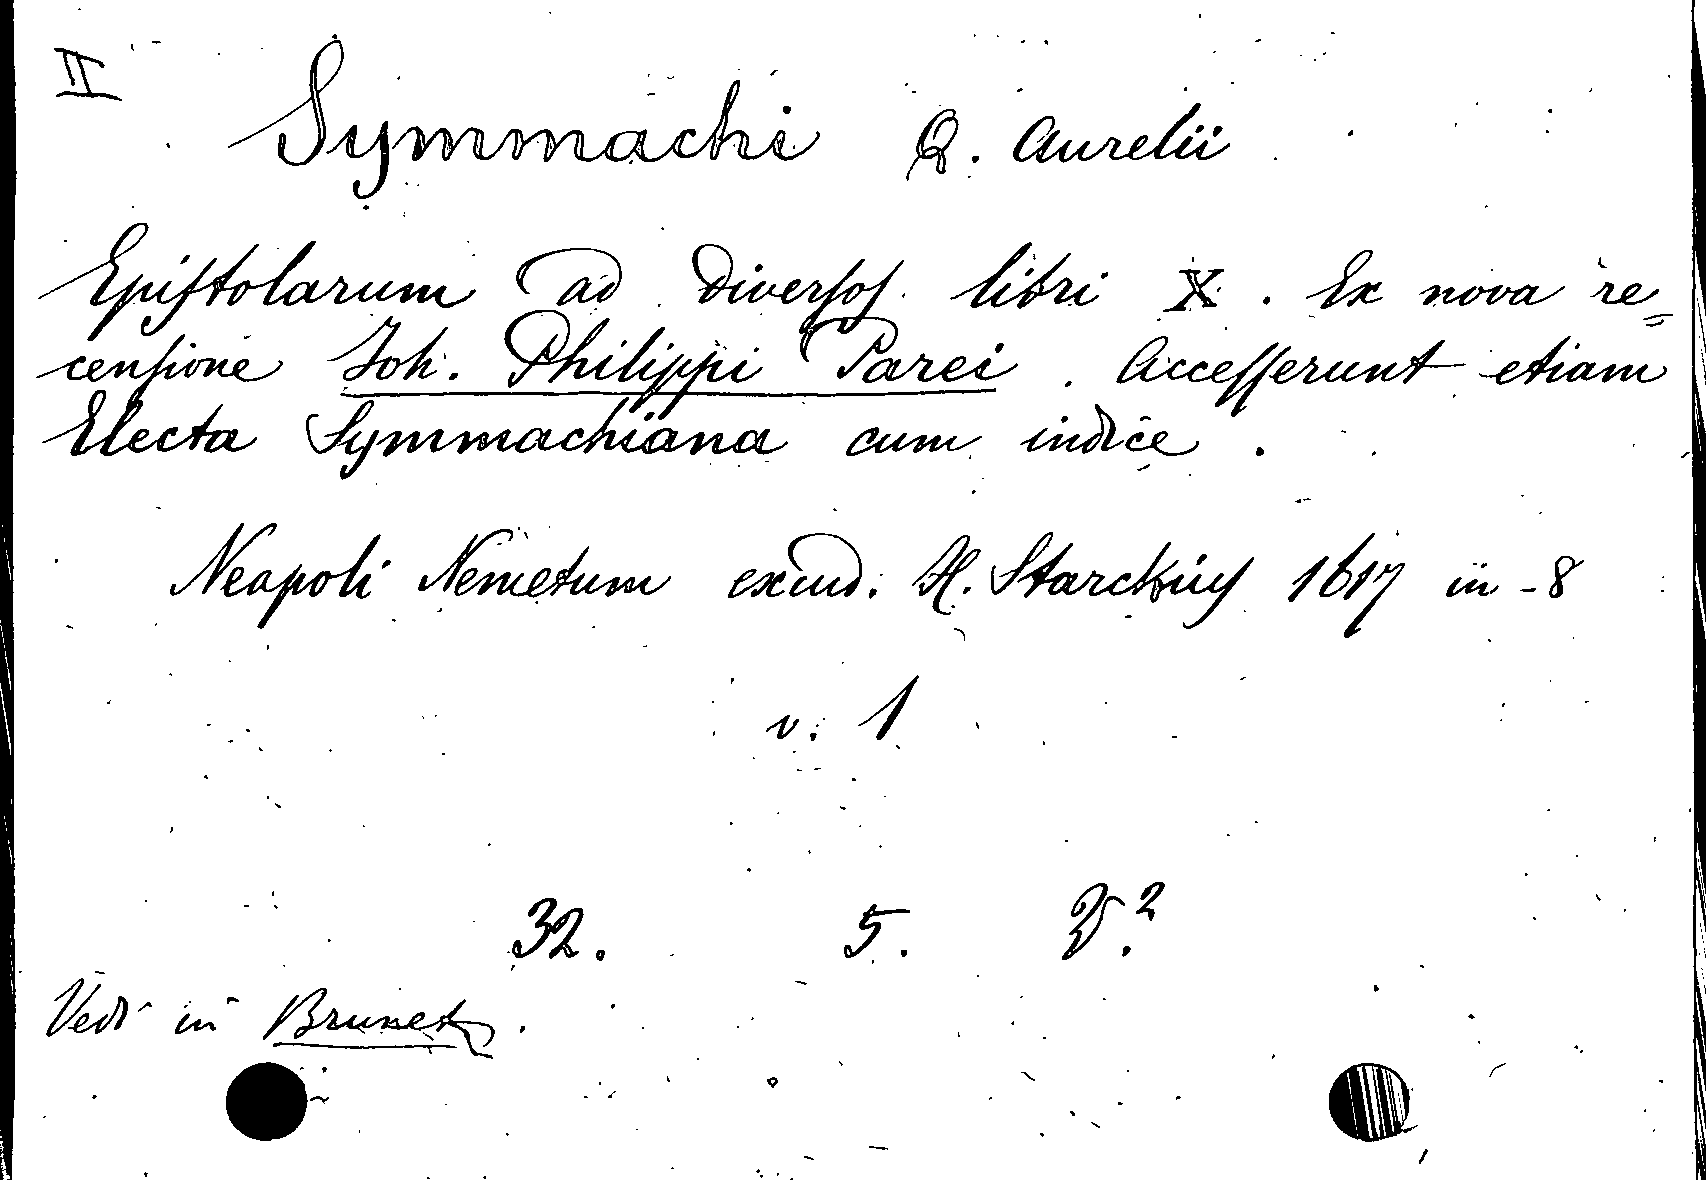 II
Symmachi Q. Aurelii
Epiſtolarum ad diverſoſ libri X. Ex nova re=
cenſione Joh. Philippi Parei. Acceſſerunt etiam
Electa Symmachiana cum indice.
Neapoli Nemetum excud. H. Starckiuſ 1617 in-8
v. 1
32. 5.
Vedi in Brunet.